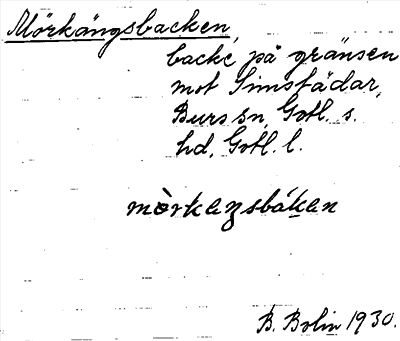 Mörkängsbacken,
backe på gränsen
mot Simstädar,
Burs sn, Gotl. s.
hd, Gotl. l.
mòrkeŋsbákan
B. Bolin 1930.